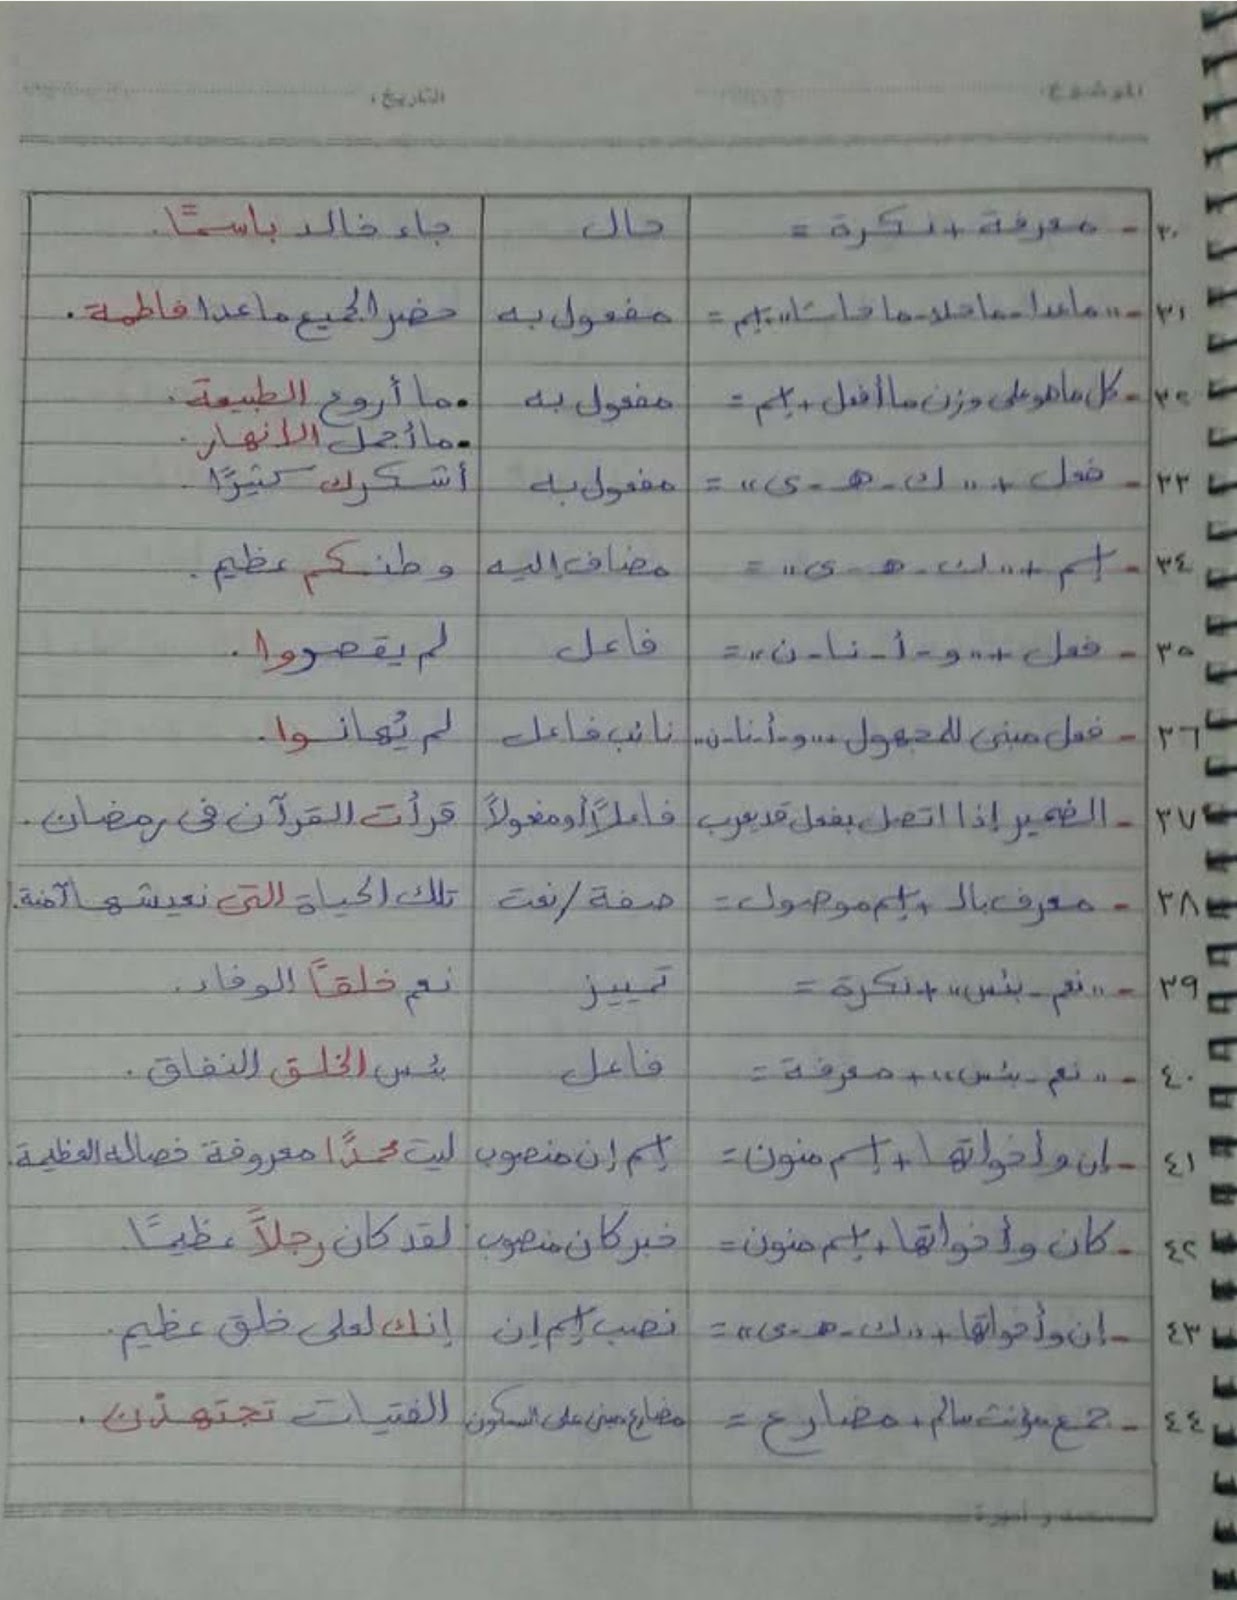 الموضوع: التاريخ:
٣٠ - معرفة + نكرة = حال جاء خالد باسمًا.
٣١ - "ماعدا - ماخلا - ما حاشا" + إسم = مفعول به حضر الجميع ماعدا فاطمة.
٣٢ - كل ما هو على وزن ما أفعل + إسم = مفعول به • ما أروع الطبيعة.
• ما أجمل الأنهار.
٣٣ - فعل + "ك - هـ - ى" = مفعول به أشكرك كثيرًا.
٣٤ - إسم + "ك - هـ - ى" = مضاف إليه وطنكم عظيم.
٣٥ - فعل + "و - أ - نا - ن" = فاعل لم يقصروا.
٣٦ - فعل مبنى للمجهول + "و - أ - نا - ن" نائب فاعل لم يُهانوا.
٣٧ - الضمير إذا اتصل بفعل قد يعرب فاعلاً أو مفعولاً قرأت القرآن فى رمضان.
٣٨ - معرف بال + إسم موصول = صفة / نعت تلك الحياة التى نعيشها آمنة.
٣٩ - "نعم - بئس" + نكرة = تمييز نعم خلقاً الوفاء.
٤٠ - "نعم - بئس" + معرفة = فاعل بئس الخلق النفاق.
٤١ - إن وأخواتها + إسم منون = إسم إن منصوب ليت محمدًا معروفة خصاله العظيمة.
٤٢ - كان وأخواتها + إسم منون = خبر كان منصوب لقد كان رجلاً عظيمًا.
٤٣ - إن وأخواتها + "ك - هـ - ى" = نصب إسم إن إنك لعلى خلق عظيم.
٤٤ - جمع مؤنث سالم + مضارع = مضارع مبنى على السكون الفتيات تجتهدْن.